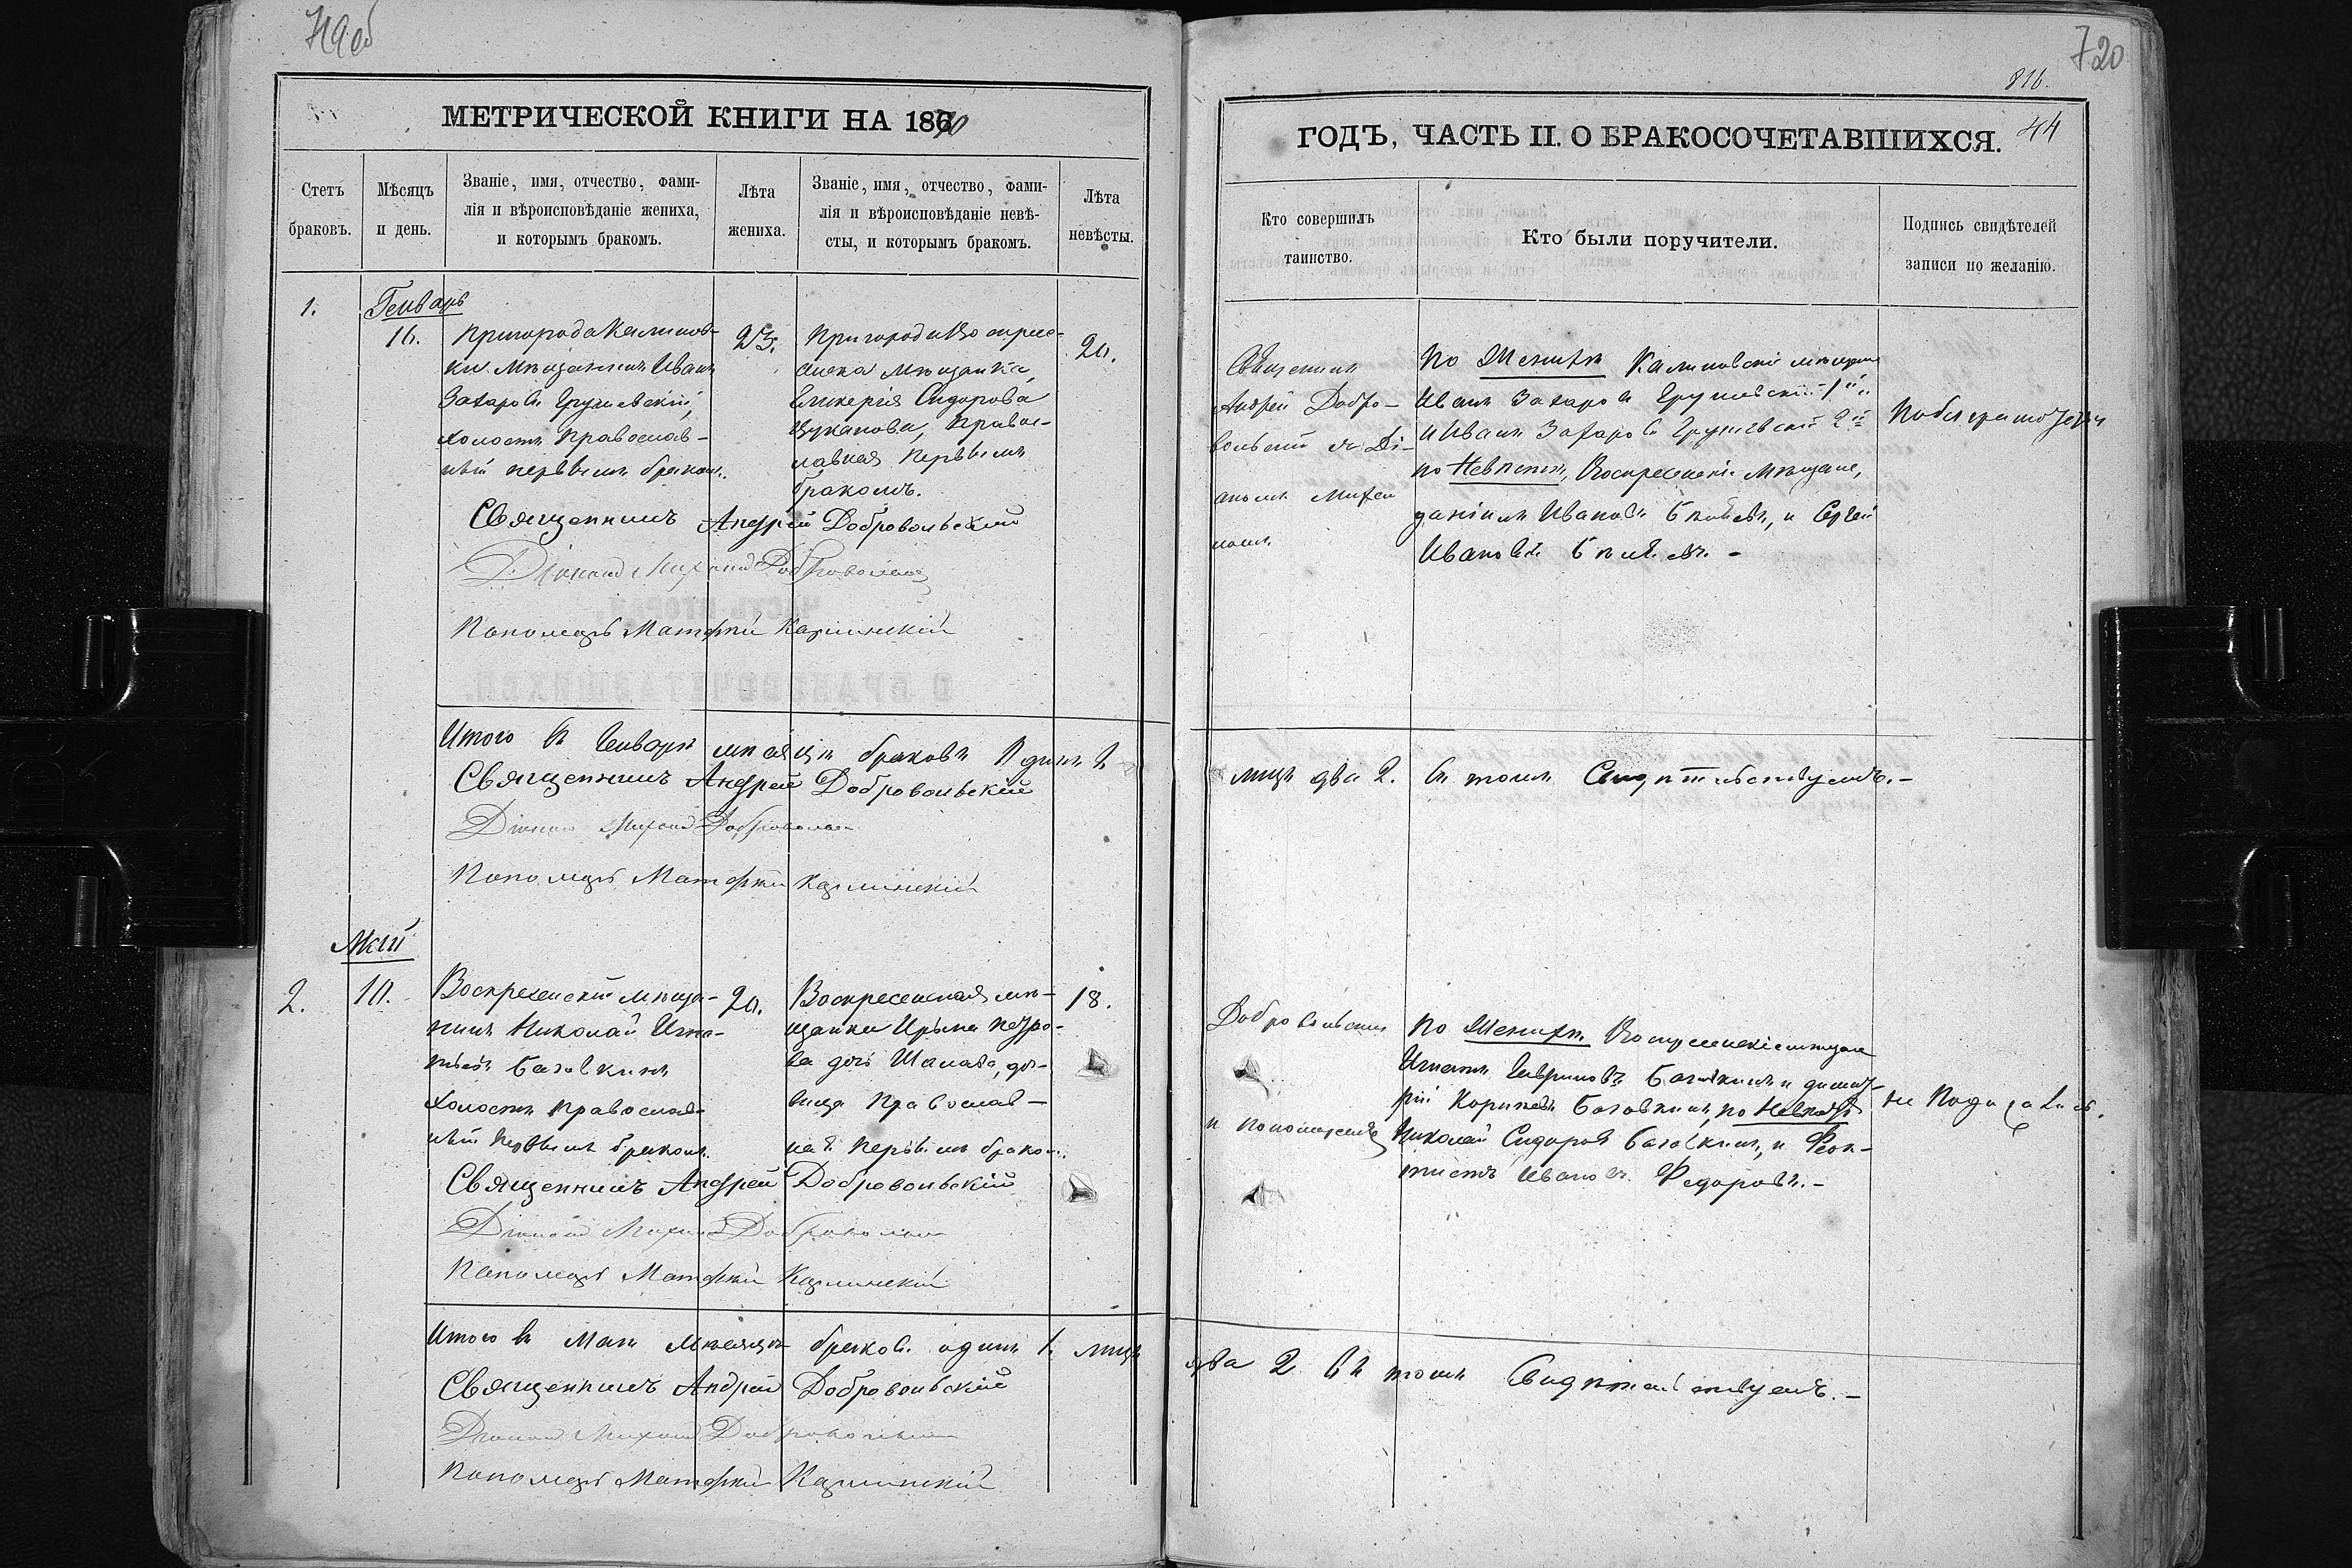 719об
МЕТРИЧЕСКОЙ КНИГИ НА 1870
Счетъ браковъ.
Мѣсяцъ и день.
Званіе, имя, отчество, фами-
лія и вѣроисповѣданіе жениха,
и которымъ бракомъ.
Лѣта
жениха.
Званіе, имя, отчество, фами-
лія и вѣроисповѣданіе невѣ-
сты, и которымъ бракомъ.
Лѣта
невѣсты.
1.
Генварь
16.
Пригорода Калинов-
ки мѣщанинъ Иванъ
Захаровъ Грушевскій,
холостъ православ-
ный первымъ бракомъ.
23.
Пригорода Воскресе-
мѣщанка,
Гликерія Сидорова
Цуканова, Правос-
лавная первымъ
бракомъ.
20.
Священникъ Андрей Добровольскій
Діаконъ Михаилъ Добровольскій
Пономарь Матфей
Итого въ Генварѣ мѣсяцѣ браковъ Одинъ 1
Священникъ Андрей Добровольскій
Діаконъ Михаилъ Добровольскій
Пономарь Матфей
Май
2.
10.
Воскресенскій мѣща-
нинъ Николай Игна-
тьевъ
холостъ православ-
ный первымъ бракомъ.
20.
Воскресенская мѣ-
щанка Ирина Петро-
ва дочь дѣ-
вица Православ-
ная первымъ бракомъ.
18.
Священникъ Андрей Добровольскій
Діаконъ Михаилъ Добровольскій
Пономарь Матфей
Итого въ Маѣ мѣсяцѣ браковъ одинъ 1. лицъ
Священникъ Андрей Добровольскій
Діаконъ Михаилъ Добровольскій
Пономарь Матфей
720
816.
44
ГОДЪ, ЧАСТЬ II. О БРАКОСОЧЕТАВШИХСЯ.
Кто совершилъ
таинство.
Кто были поручители.
Подпись свидѣтелей
записи по желанію.
Священникъ
Андрей Добро-
вольскій съ Ді-
акономъ Михаи
ломъ
По Женихѣ Калиновскіе мѣщане
Иванъ Захаровъ Грушевскій 1й
и Иванъ Захаровъ Грушевскій 2й
по Невѣстѣ, Воскресенскіе мѣщане,
Даніилъ Ивановъ и Сергей
Ивановъ
лицъ два 2. въ томъ Свидѣтельствуемъ.-
Добровольскимъ
и пономаремъ
По Женихѣ Воскресенскіе мѣщане
Игнатъ Гавриловъ и Димит-
рій по Невѣстѣ
Николай Сидоровъ и Феок-
тистъ Ивановъ Федоровъ.-
не
два 2 въ томъ Свидѣтельствуемъ.-